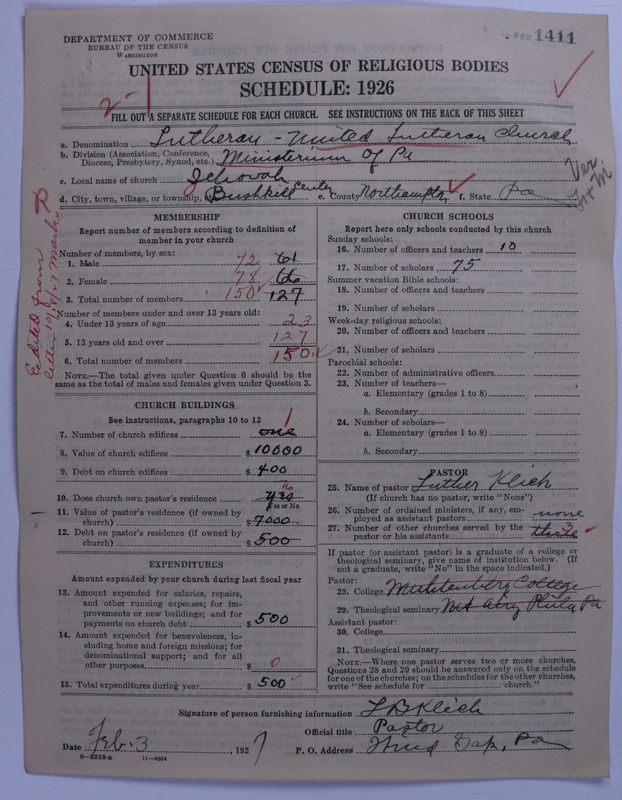 DEPARTMENT OF COMMERCE
BUREAU OF THE CENSUS
WASHINGTON
FEB 1411
UNITED STATES CENSUS OF RELIGIOUS BODIES
SCHEDULE: 1926
2-1
FILL OUT A SEPARATE SCHEDULE FOR EACH CHURCH. SEE INSTRUCTIONS ON THE BACK OF THIS SHEET
a. Denomination Lutheran - United Lutheran Church
b. Division (Association, Conference, Diocese, Presbytery, Synod, etc.) Ministerium Of Pa
c. Local name of church Jehovah
d. City, town, village, or township, Bushkill Center e. County Northampton f. State Pa
Ver
MEMBERSHIP
Report number of members according to definition of
member in your church
Number of members, by sex:
1. Male 72 61
2. Female 78 66
3. Total number of members 150 127
Number of members under and over 13 years old:
4. Under 13 years of age 23
5. 13 years old and over 127
6. Total number of members 150
NOTE.—The total given under Question 6 should be the
same as the total of males and females given under Question 3.
Edited from
letter 10/8/27
CHURCH BUILDINGS
See instructions, paragraphs 10 to 12
7. Number of church edifices one 1
8. Value of church edifices $ 10000
9. Debt on church edifices $ 400
10. Does church own pastor's residence yes no
Yes or No
11. Value of pastor's residence (if owned by
church) $ 7000
12. Debt on pastor's residence (if owned by
church) $ 500
EXPENDITURES
Amount expended by your church during last fiscal year
13. Amount expended for salaries, repairs,
and other running expenses; for im-
provements or new buildings; and for
payments on church debt $ 500
14. Amount expended for benevolences, in-
cluding home and foreign missions; for
denominational support; and for all
other purposes $ 0
15. Total expenditures during year $ 500
CHURCH SCHOOLS
Report here only schools conducted by this church
Sunday schools:
16. Number of officers and teachers 10
17. Number of scholars 75
Summer vacation Bible schools:
18. Number of officers and teachers
19. Number of scholars
Week-day religious schools:
20. Number of officers and teachers
21. Number of scholars
Parochial schools:
22. Number of administrative officers
23. Number of teachers—
a. Elementary (grades 1 to 8)
b. Secondary
24. Number of scholars—
a. Elementary (grades 1 to 8)
b. Secondary
PASTOR
25. Name of pastor Luther Klich
(If church has no pastor, write "None")
26. Number of ordained ministers, if any, em-
ployed as assistant pastors none
27. Number of other churches served by the
pastor or his assistants three
If pastor (or assistant pastor) is a graduate of a college or
theological seminary, give name of institution below. (If
not a graduate, write "No" in the space indicated.)
Pastor:
28. College Muhlenberg College
29. Theological seminary Mt Airy Phila Pa
Assistant pastor:
30. College
31. Theological seminary
NOTE.—Where one pastor serves two or more churches,
Questions 28 and 29 should be answered only on the schedule
for one of the churches; on the schedules for the other churches,
write "See schedule for church."
Signature of person furnishing information L B Klich
Official title Pastor
Date Feb. 3, 1927 P. O. Address Wind Gap, Pa
8-5518a 11-9034